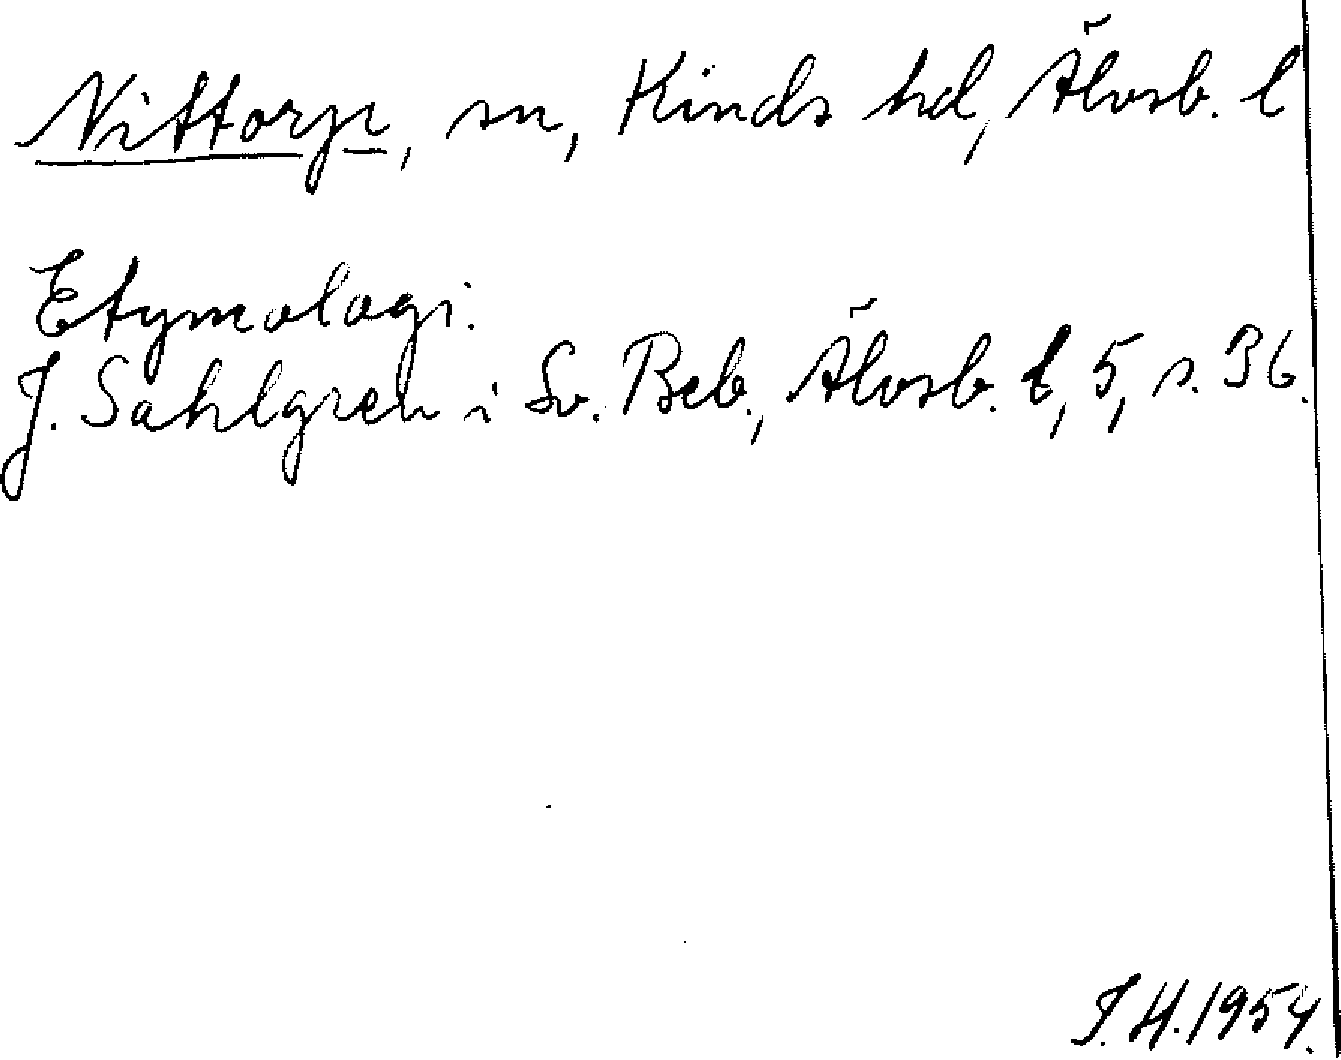 Nittorp, sn, Kinds hd, Älvsb. l
Etymologi.
J. Sahlgren i Sv. Beb., Älvsb. l, 5, s. 36.
I. H. 1954.